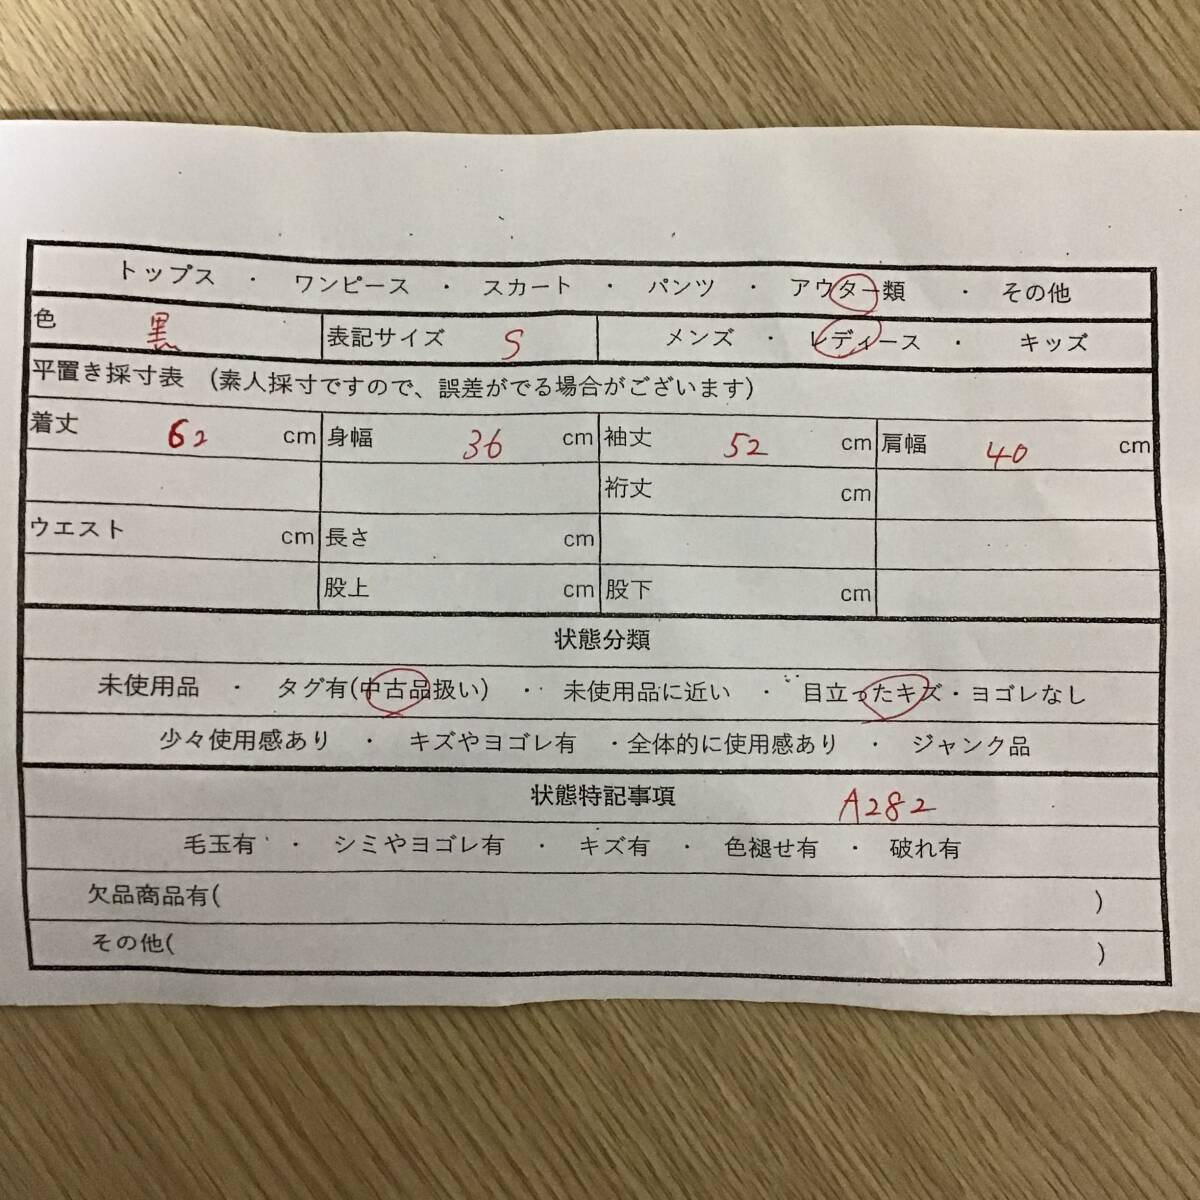 トップス ・ ワンピース ・ スカート ・ パンツ ・ アウター類 ・ その他
色 黒 表記サイズ S メンズ ・ レディース ・ キッズ
平置き採寸表 (素人採寸ですので、誤差がでる場合がございます)
着丈 62 cm 身幅 36 cm 袖丈 52 cm 肩幅 40 cm
裄丈 cm
ウエスト cm 長さ cm
股上 cm 股下 cm
状態分類
未使用品 ・ タグ有(中古品扱い) ・ 未使用品に近い ・ 目立ったキズ・ヨゴレなし
少々使用感あり ・ キズやヨゴレ有 ・全体的に使用感あり ・ ジャンク品
状態特記事項 A282
毛玉有 ・ シミやヨゴレ有 ・ キズ有 ・ 色褪せ有 ・ 破れ有
欠品商品有( )
その他( )